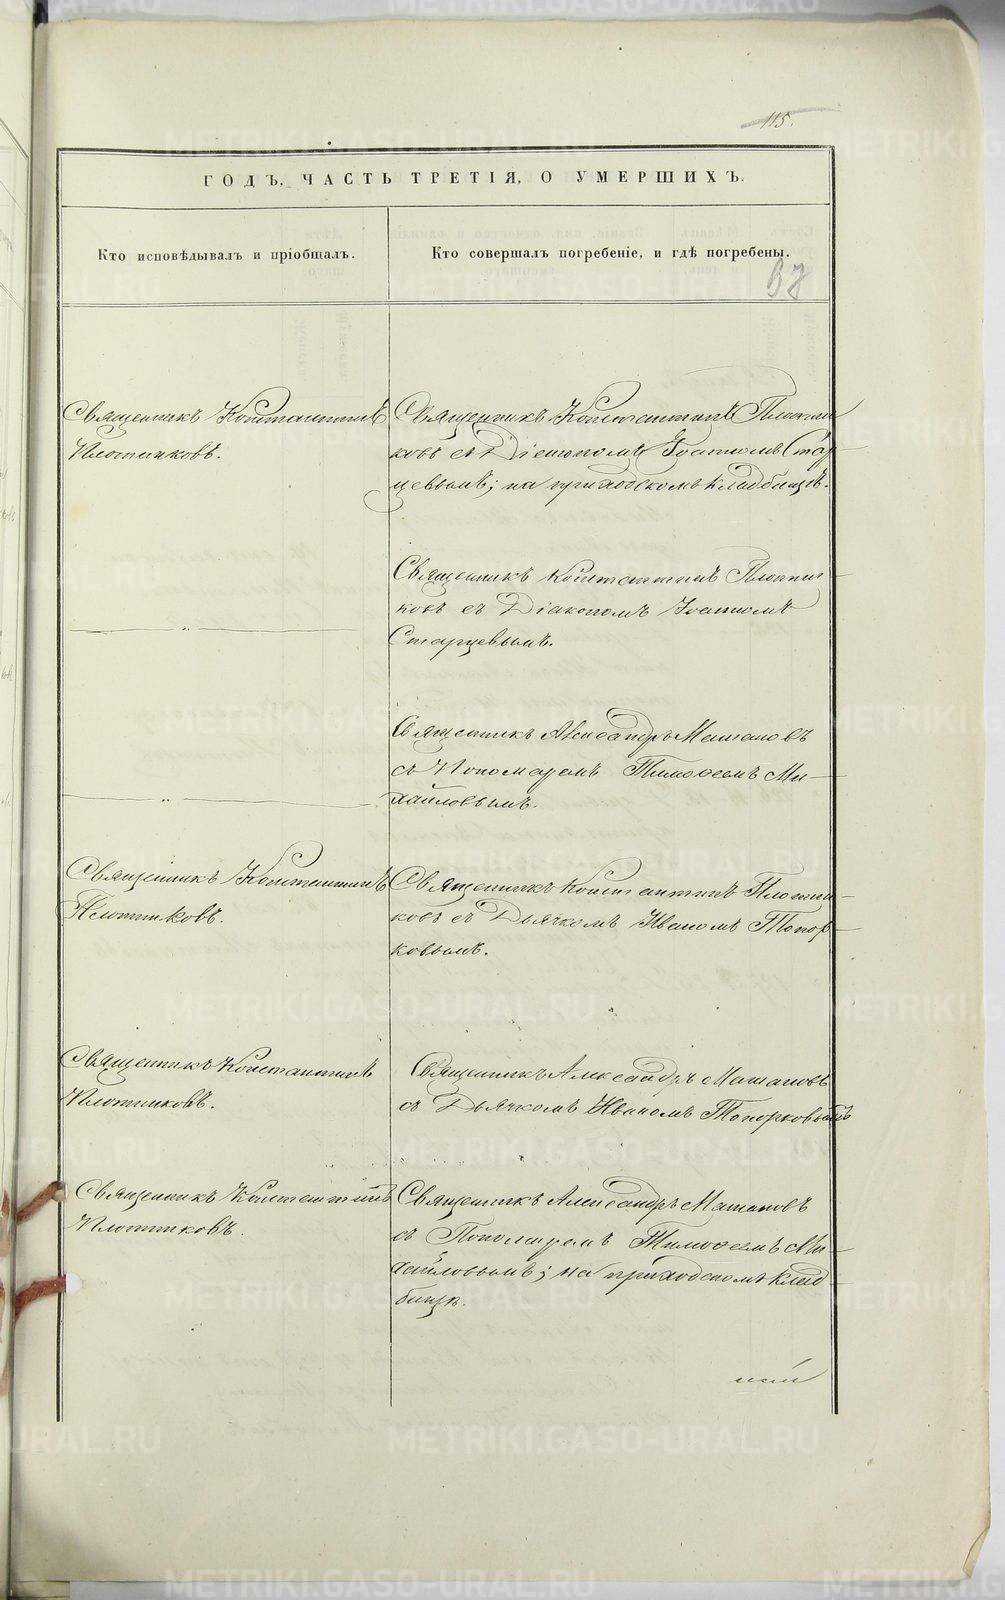 115.
ГОДЪ, ЧАСТЬ ТРЕТІЯ, О УМЕРШИХЪ.
Кто исповѣдывалъ и пріобщалъ.
Кто совершалъ погребеніе, и гдѣ погребены.
Священникъ Константинъ
Плотниковъ.
Священникъ Константинъ Плотни
ковъ съ Діакономъ Іоанномъ Стар
цевымъ; на приходскомъ кладбищѣ.
— „ —
Священникъ Константинъ Плотни
ковъ съ Діакономъ Іоанномъ
Старцевымъ.
— „ —
Священникъ Александръ Матановъ
съ Пономаремъ Тимоѳеемъ Ми-
хайловымъ.
Священникъ Константинъ
Плотниковъ.
Священникъ Константинъ Плотни-
ковъ съ Дьячкомъ Иваномъ Топор-
ковымъ.
Священникъ Константинъ
Плотниковъ.
Священникъ Александръ Матановъ
съ Дьячкомъ Иваномъ Топорковымъ
Священникъ Константинъ
Плотниковъ.
Священникъ Александръ Матановъ
съ Пономаремъ Тимоѳеемъ Ми-
хайловымъ; на приходскомъ клад-
бищѣ.
METRIKI.GASO-URAL.RU